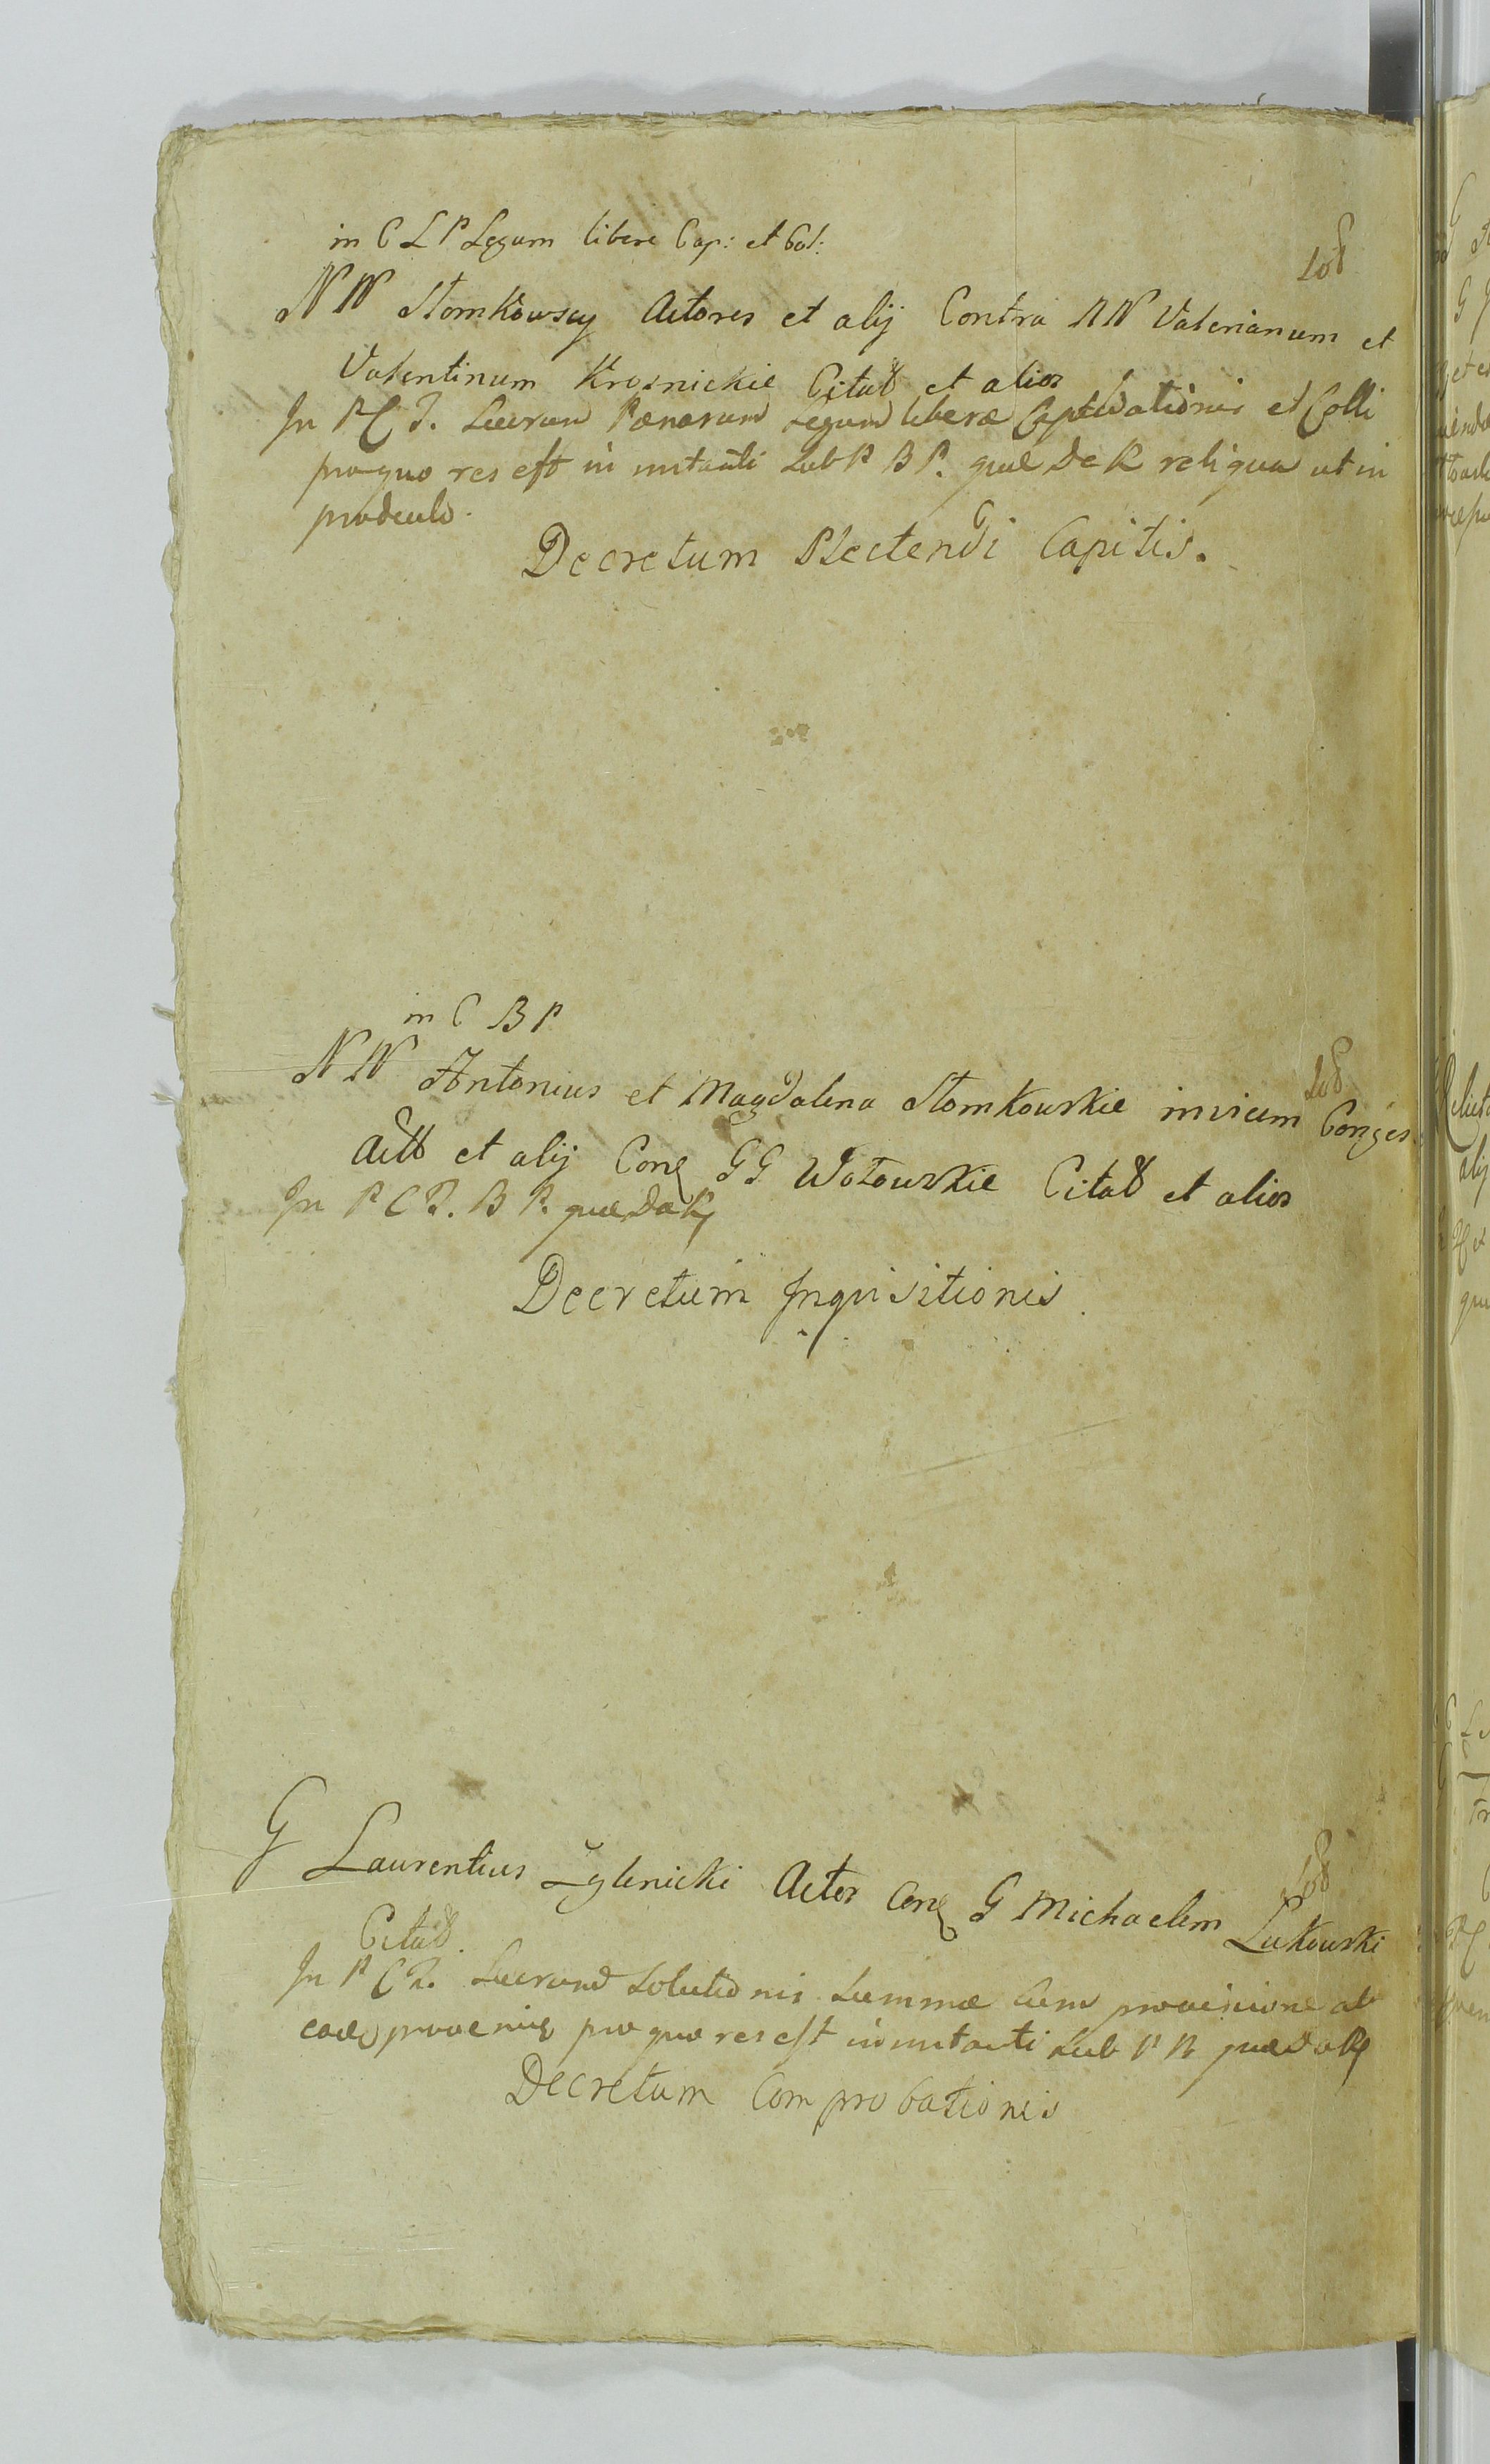 in C L P Legum libere Cap: et Col:
NN Słomkowscy Actores et alij Contra NN Valerianum et
Valentinum Krosnickie Citat et alios
In P C T. Lucrum Pænarum Legum liberæ Captivationis et Colli
pro quo res est in instanti sub P B P. quæ de R reliqua ut in
Decretum Plectendi Capitis.
in C B P
NN Antonius et Magdalena Słomkowskie invicem Conges
Act et alij Con GG Wołowskie Citat et alios
In P C R. B P. quæ
Decretum Inquisitionis
G Laurentius Zglenicki Actor Con G Michaelem Łukowski
Citat.
In P C R. Lucrum Solutionis Summæ cum provisione ab
pro quo res est in instanti sub P N
Decretum Comprobationis